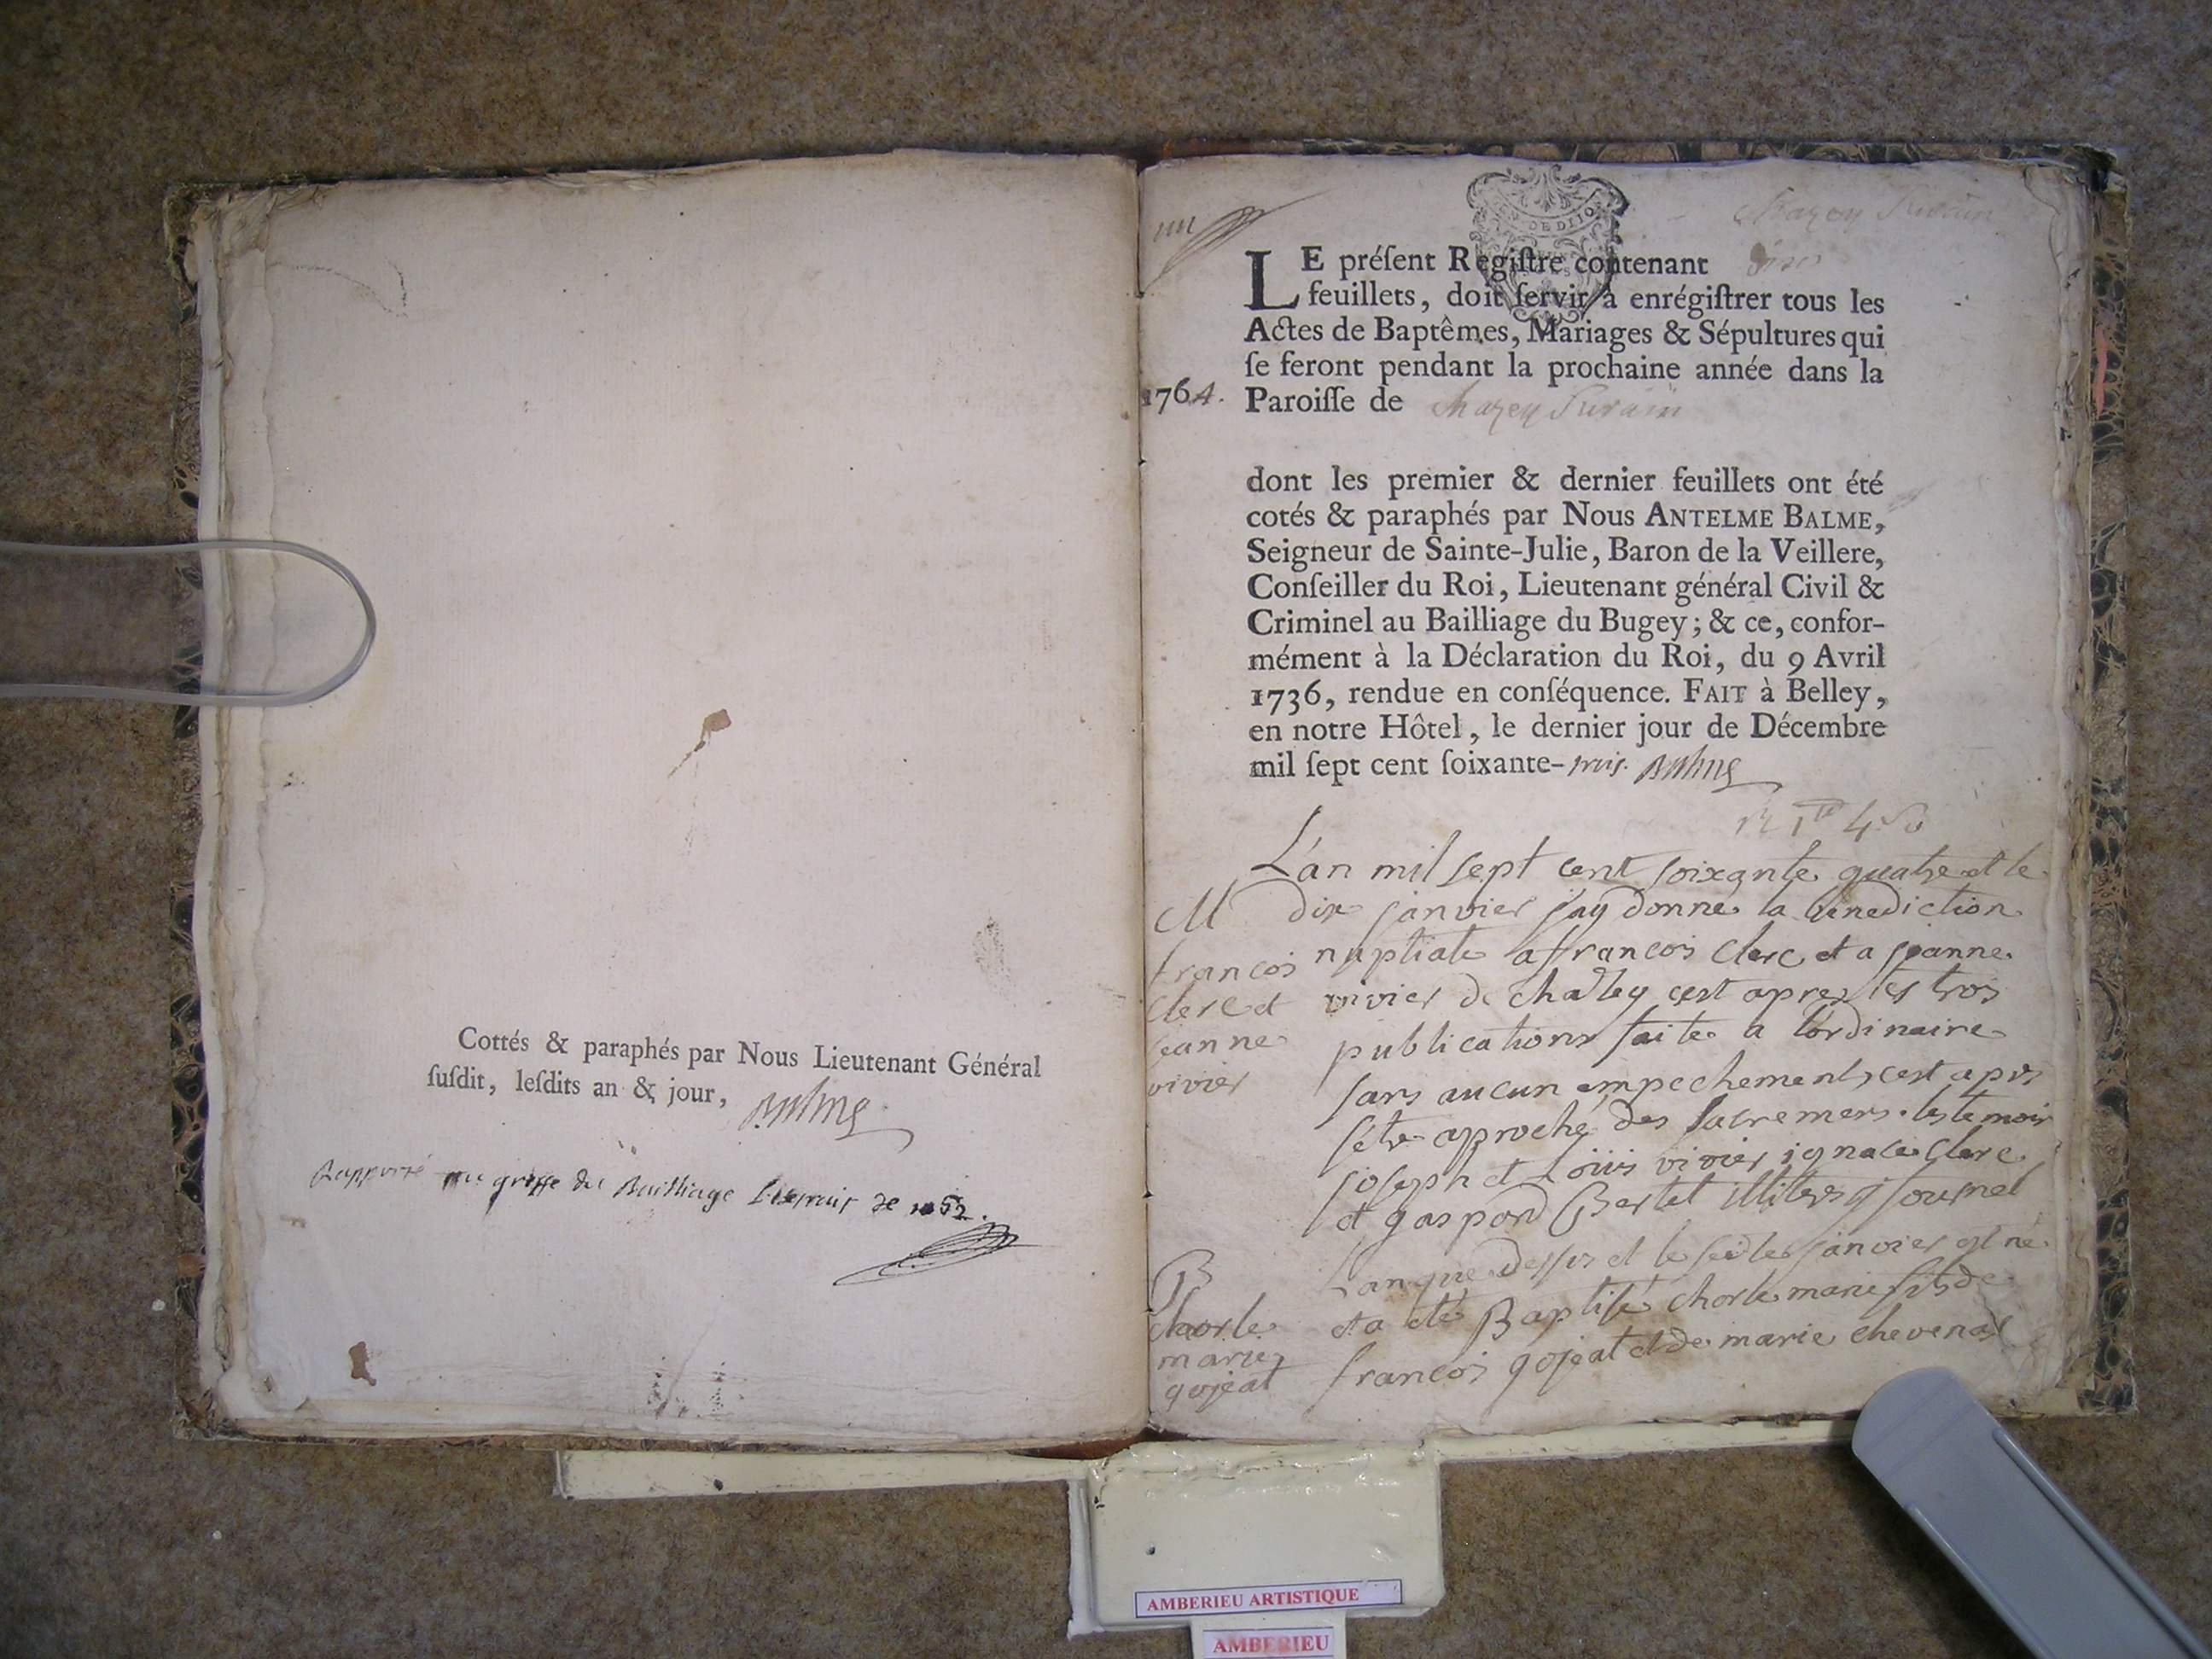 Cottés & paraphés par Nous Lieutenant Général
ſuſdit, leſdits an & jour, Balme
Rapporté au greffe du Bailliage
Chazey Surain
LE préſent Regiſtre contenant
feuillets, doit ſervir à enrégiſtrer tous les
Actes de Baptêmes, Mariages & Sépultures qui
ſe feront pendant la prochaine année dans la
1764. Paroiſſe de chazey Surain
dont les premier & dernier feuillets ont été
cotés & paraphés par Nous ANTELME BALME,
Seigneur de Sainte-Julie, Baron de la Veillere,
Conſeiller du Roi, Lieutenant général Civil &
Criminel au Bailliage du Bugey; & ce, confor-
mément à la Déclaration du Roi, du 9 Avril
1736, rendue en conſéquence. FAIT à Belley,
en notre Hôtel, le dernier jour de Décembre
mil ſept cent ſoixante-trois. Balme
L'an mil sept cent soixante quatre et le
dix janvier jay donné la benediction
nuptiale a francois clerc et a jeanne
vivier de chazey cest apres les trois
publications faite a lordinaire
sans aucun empechement, cest apres
sêtre aproché des sacremens. les temoins
joseph et Loüis vivier ignace clerc
et gaspard Bertet illiteres
M
francois
clerc et
jeanne
vivier
Lan que dessus et le janvier est né
et a été Baptisé charle marie fils de
francois gojeat et de marie chevenas
B
charle
marie
gojeat
AMBERIEU ARTISTIQUE
AMBERIEU